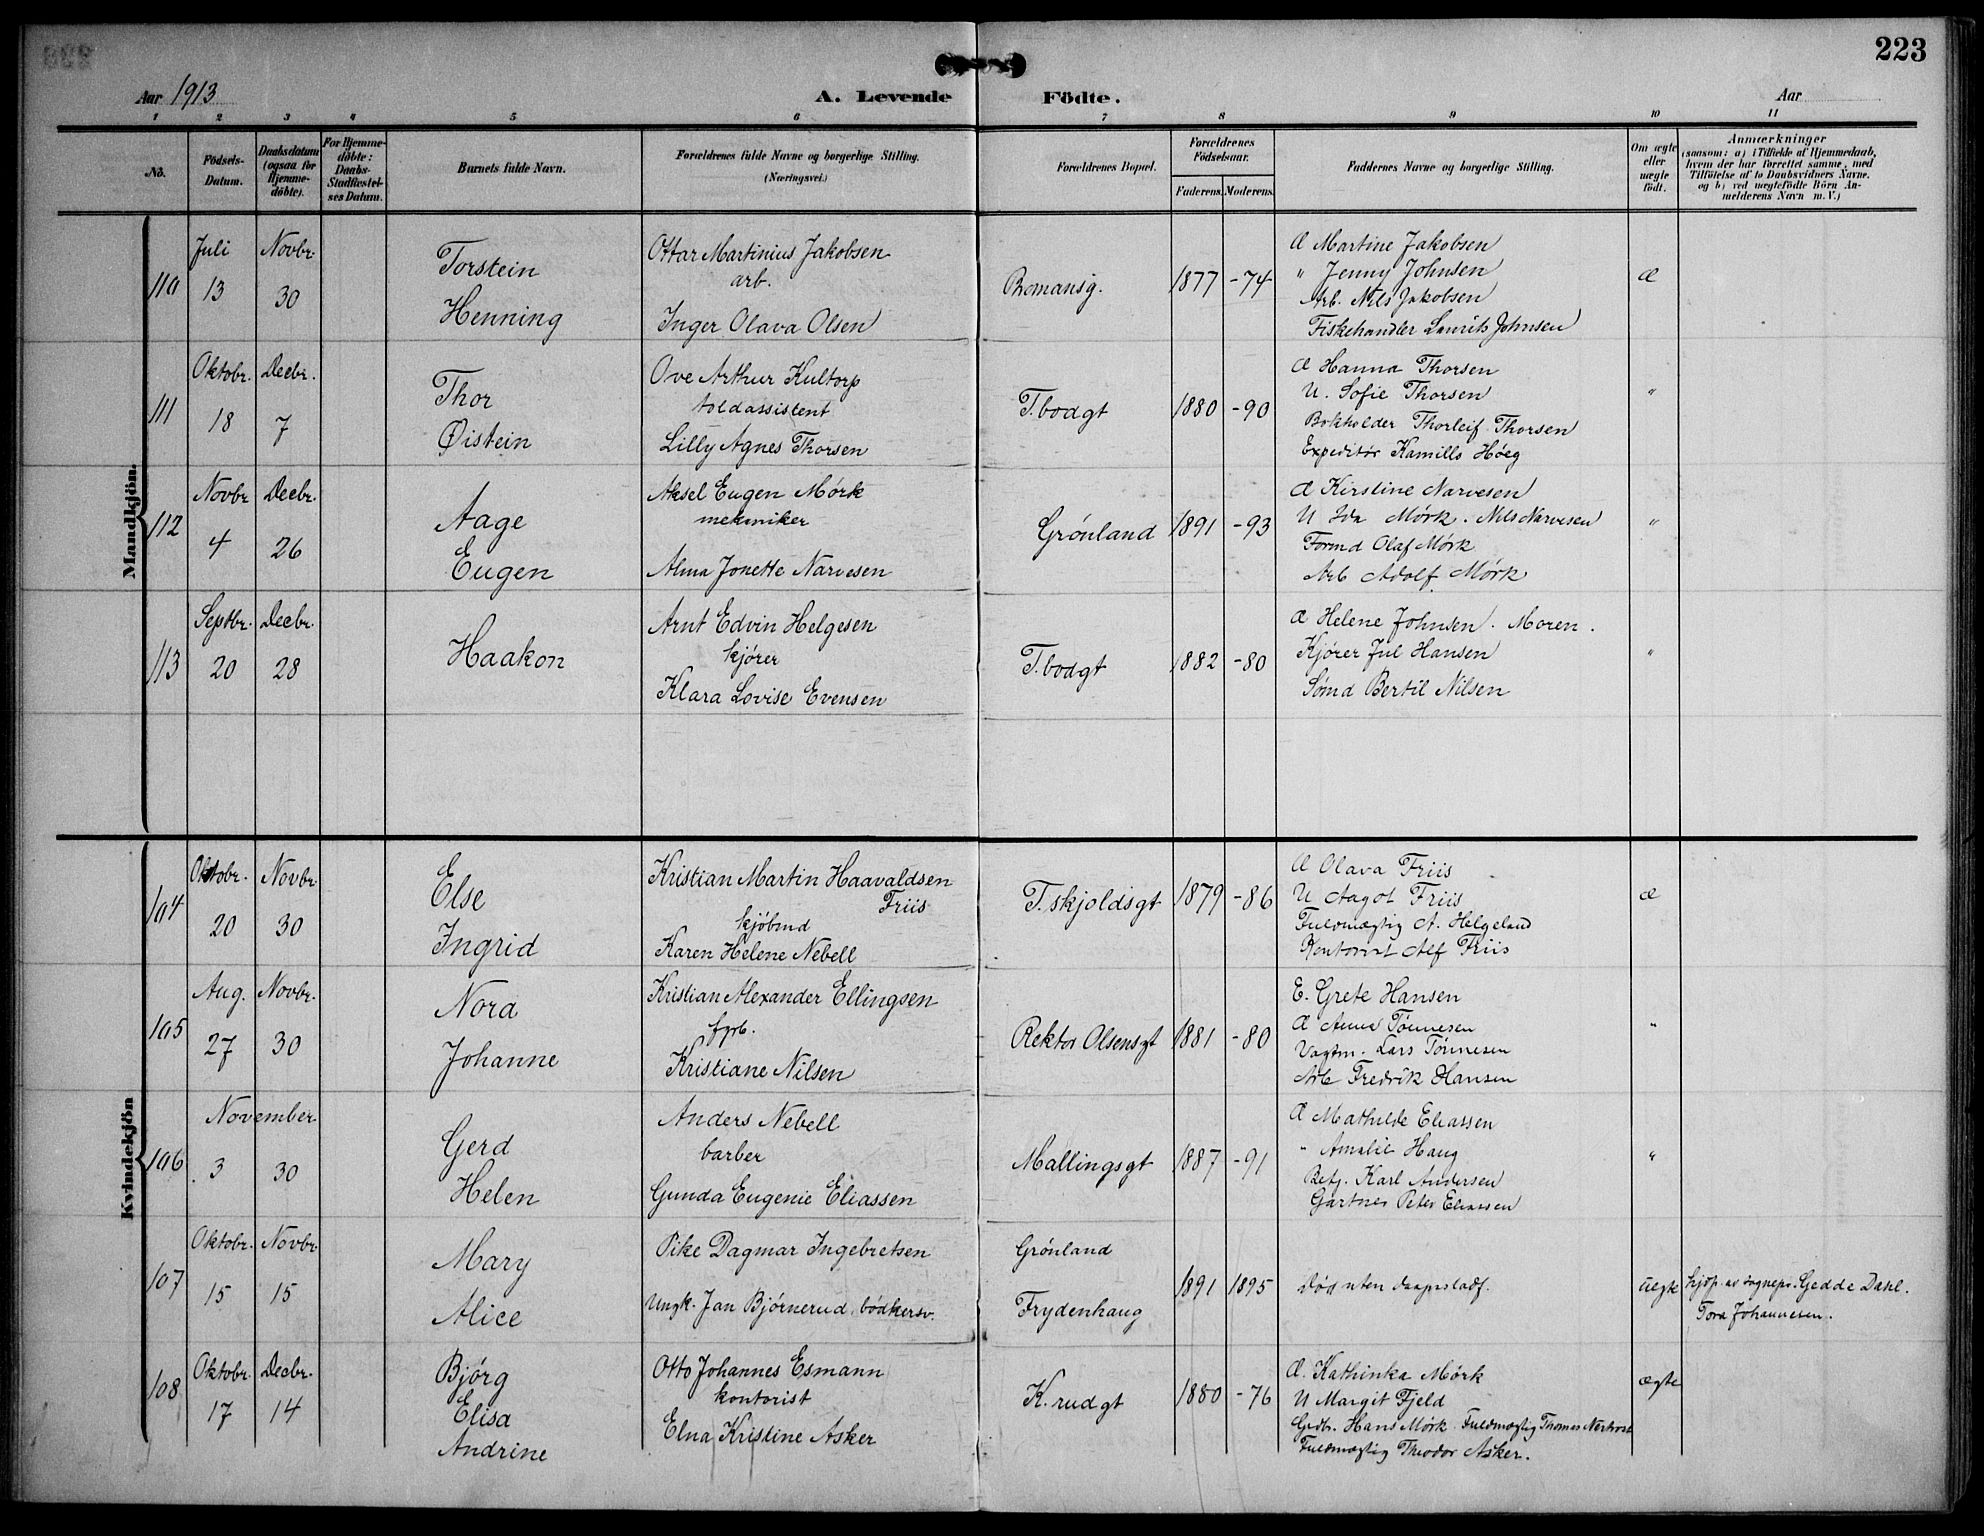 223
Aar 1913
A. Levende Födte.
Aar
1 2 3 4 5 6 7 8 9 10 11
No.
Födsels-Datum.
Daabsdatum (ogsaa for Hjemmedöbte).
For Hjemmedöbte: Daabs-Stadfæstelses Datum.
Barnets fulde Navn.
Forældrenes fulde Navne og borgerlige Stilling.
(Næringsvei.)
Forældrenes Bopæl.
Forældrenes Födselsaar.
Faderens. Moderens.
Faddernes Navne og borgerlige Stilling.
Om ægte eller uægte födt.
Anmærkninger
(saasom: a) i Tilfælde af Hjemmedaab,
hvem der har forrettet samme, med
Tilföielse af to Daabsvidners Navne.
og b) ved uægtefödte Börn An-
melderens Navn m. V.)
Mandkjön.
110 Juli 13 Novbr. 30
Torstein
Henning
Ottar Martinius Jakobsen
arb.
Inger Olava Olsen
Bromansg. 1877 -74
Æ Martine Jakobsen
" Jenny Johnsen
Arb. Nils Jakobsen
Fiskehandler Laurits Johnsen
Æ
111 Oktobr. 18 Decbr. 7
Thor
Øistein
Ove Arthur Kultorp
toldassistent
Lilly Agnes Thorsen
T.bodgt 1880 -90
Æ Hanna Thorsen
U. Sofie Thorsen
Bokholder Thorleif Thorsen
Expeditør Kamillo Höeg
"
112 Novbr 4 Decbr. 26
Aage
Eugen
Aksel Eugen Mørk
mekaniker
Alma Jonette Narvesen
Grönland 1891 -93
Æ Kirstine Narvesen
U Ida Mørk. Nils Narvesen
Formd Olaf Mørk
Arb Adolf Mørk
"
113 Septbr. 20 Decbr. 28
Haakon
Arnt Edvin Helgesen
kjører
Klara Lovise Evensen
T.bodgt 1882 -80
Æ Helene Johnsen. Moren.
Kjører Jul Hansen
Sømd Bertil Nilsen
"
Kvindekjön
104 Oktobr. 20 Novbr 30
Else
Ingrid
Kristian Martin Haavaldsen
Friis
kjöbmd
Karen Helene Nebell
T.skjoldsgt 1879 -86
Æ Olava Friis
U Aagot Friis
Fuldmægtig A. Helgeland
Kontorist Alf Friis
Æ
105 Aug. 27 Novbr. 30
Nord
Johanne
Kristian Alexander Ellingsen
fgrb.
Kristiane Nilsen
Rektor Olsensgt 1881 -80
E. Grete Hansen
Æ Anna Tönnesen
Vagtm. Lars Tönnesen
Arb Fredrik Hansen
"
106 November 3 30
Gerd
Helen
Anders Nebell
barber
Gunda Eugenie Eliassen
Mallingsgt 1887 -91
Æ Mathilde Eliassen
" Amalie Haug
Betj. Karl Andersen
Gartner Peter Eliassen
"
107 Oktobr. 15 Novbr 15
Mary
Alice
Pike Dagmar Ingebretsen
Ungk. Jan Björnerud, bödkersv.
Grönland
Frydenhaug
1891 1895
død uten daapsstadf.
uegte
hjdp. av sognepr. Gedde Dahl.
Tora Johannesen.
108 Oktobr. 17 Decbr. 14
Bjørg
Elisa
Andrine
Otto Johannes Esmann
kontorist
Elna Kristine Asker
K.rudgt 1880 -76
Æ. Kathinka Mørk
U Margit Fjeld
Grdbr. Hans Mørk. Fuldmægtig Thomas
Fuldmægtig Theodor Asker.
ægte